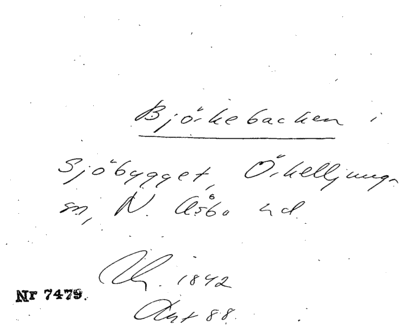 Björkebacken i
Sjöbygget, Örkelljunga
sn, N. Åsbo hd.
1842
Nr 7479.
88.